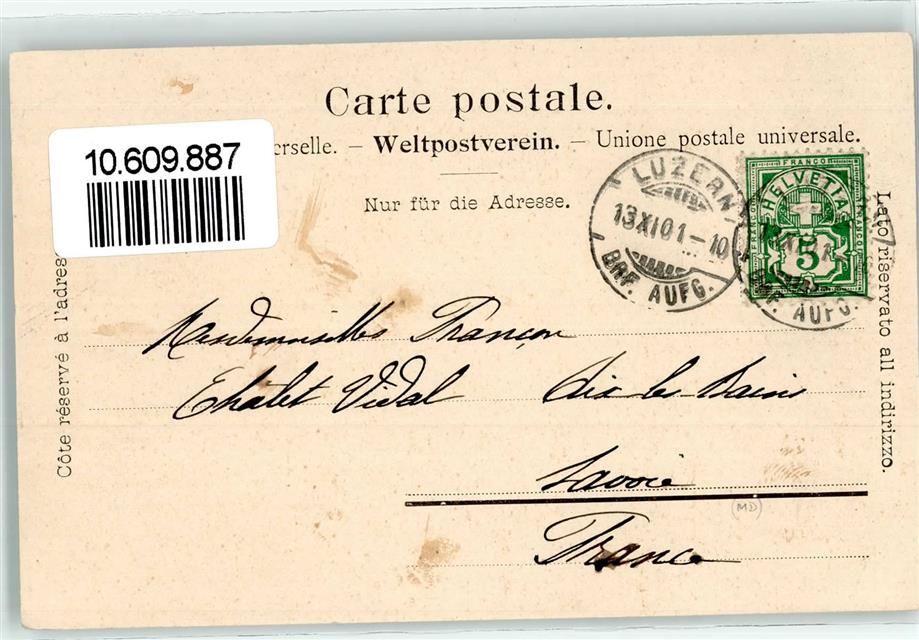 Carte postale.
erselle. — Weltpostverein. — Unione postale universale.
Nur für die Adresse.
10.609.887
Côte réservé à l'adres
Lato riservato all indirizzo.
LUZERN
13.XI.01.-10
BRF. AUFG.
FRANCO
HELVETIA
5
BRF. AUFG.
Mesdemoiselles Françon
Châlet Vidal Aix les Bains
Savoie
France
(MD)